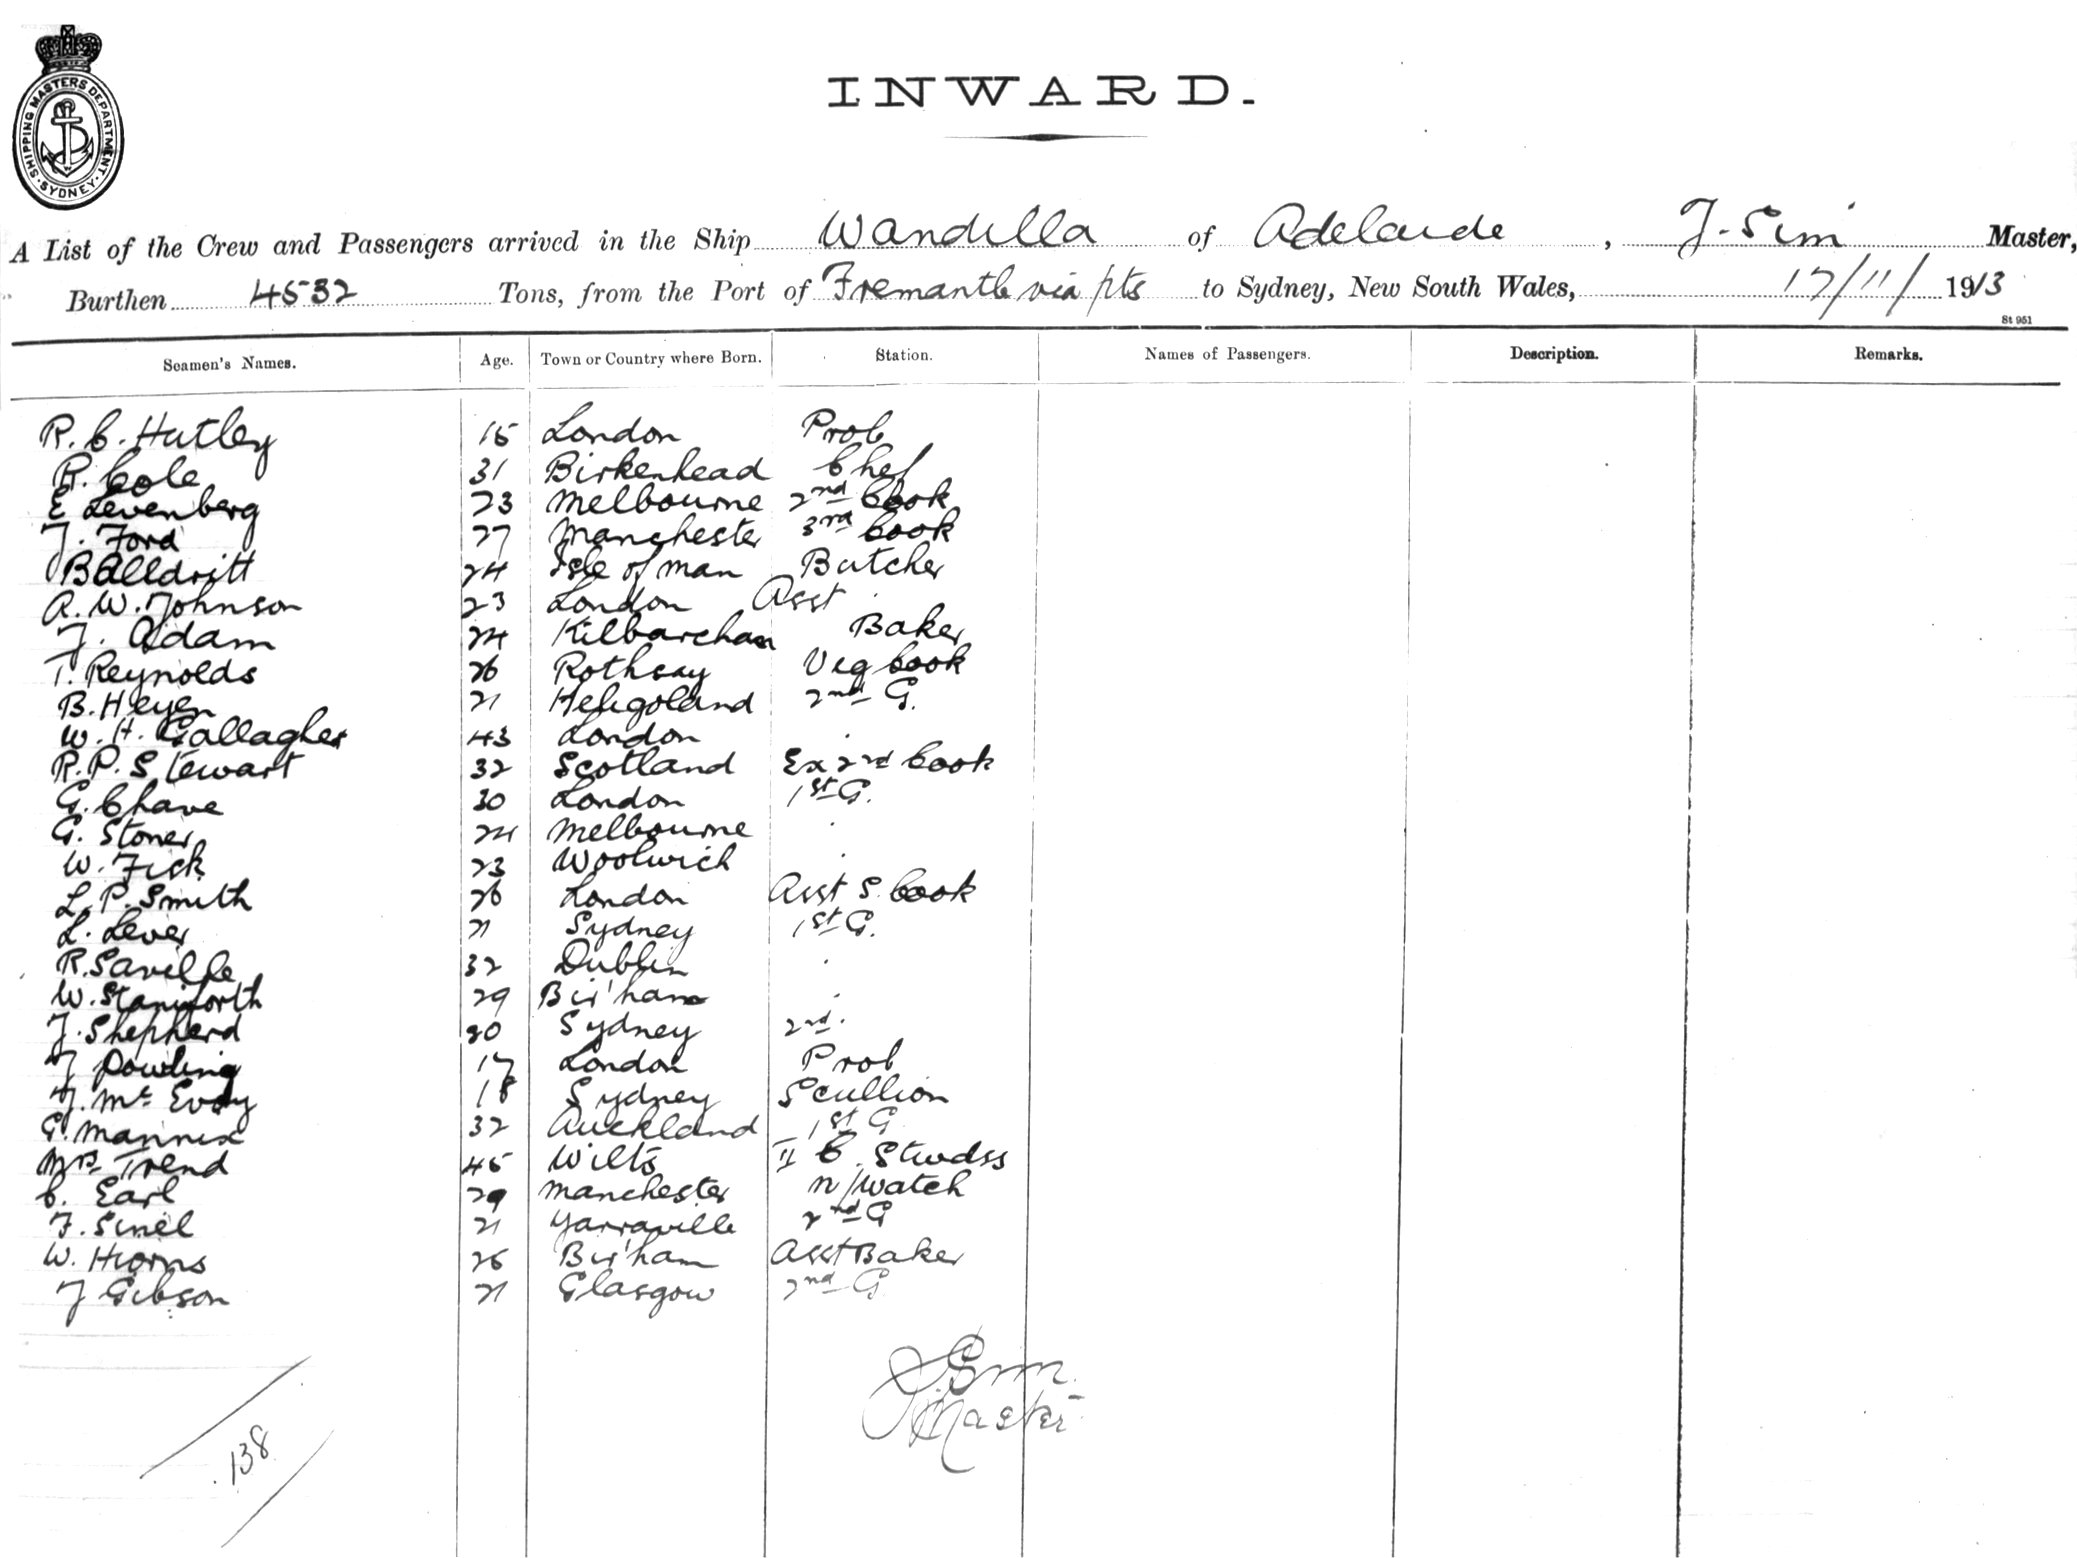 SHIPPING MASTERS DEPARTMENT. SYDNEY.
INWARD.
A List of the Crew and Passengers arrived in the Ship Wandilla of Adelaide, J. Sim Master,
Burthen 4532 Tons, from the Port of Fremantle via pts to Sydney, New South Wales, 17/11/1913
St 951
Seamen's Names. Age. Town or Country where Born. Station. Names of Passengers. Description. Remarks.
R. C. Hutley 15 London Prob
R. Cole 31 Birkenhead Chef
E Levenberg 23 Melbourne 2nd Cook
J. Ford 27 Manchester 3rd Cook
B Alldritt 24 Isle of man Butcher
A. W. Johnson 23 London Asst .
J. Adam 24 Kilbarchan Baker
T. Reynolds 26 Rothsay Veg Cook
B. Heyen 21 Heligoland 2nd G.
W. H. Gallagher 43 London .
R. P. Stewart 32 Scotland Ex 2nd Cook
G. Chave 30 London 1st G.
G. Stoner 24 Melbourne .
W. Fick 23 Woolwich .
L. P. Smith 26 London Asst S. Cook
L. Lever 21 Sydney 1st G.
R. Saville 32 Dublin .
W. Staniforth 29 Bir'ham .
J. Shepherd 20 Sydney 2nd .
J Dowling 17 London Prob
J. Mc Evoy 18 Sydney Scullion
G. Mannix 32 Auckland 1st G
Mrs Trend 45 Wilts II C. Stwdss
C. Earl 29 Manchester N/Watch
F. Sinel 21 Yarraville 2nd G
W. Hiorns 26 Bir'ham Asst Baker
J Gibson 21 Glasgow 2nd G
J Sim
Master
138